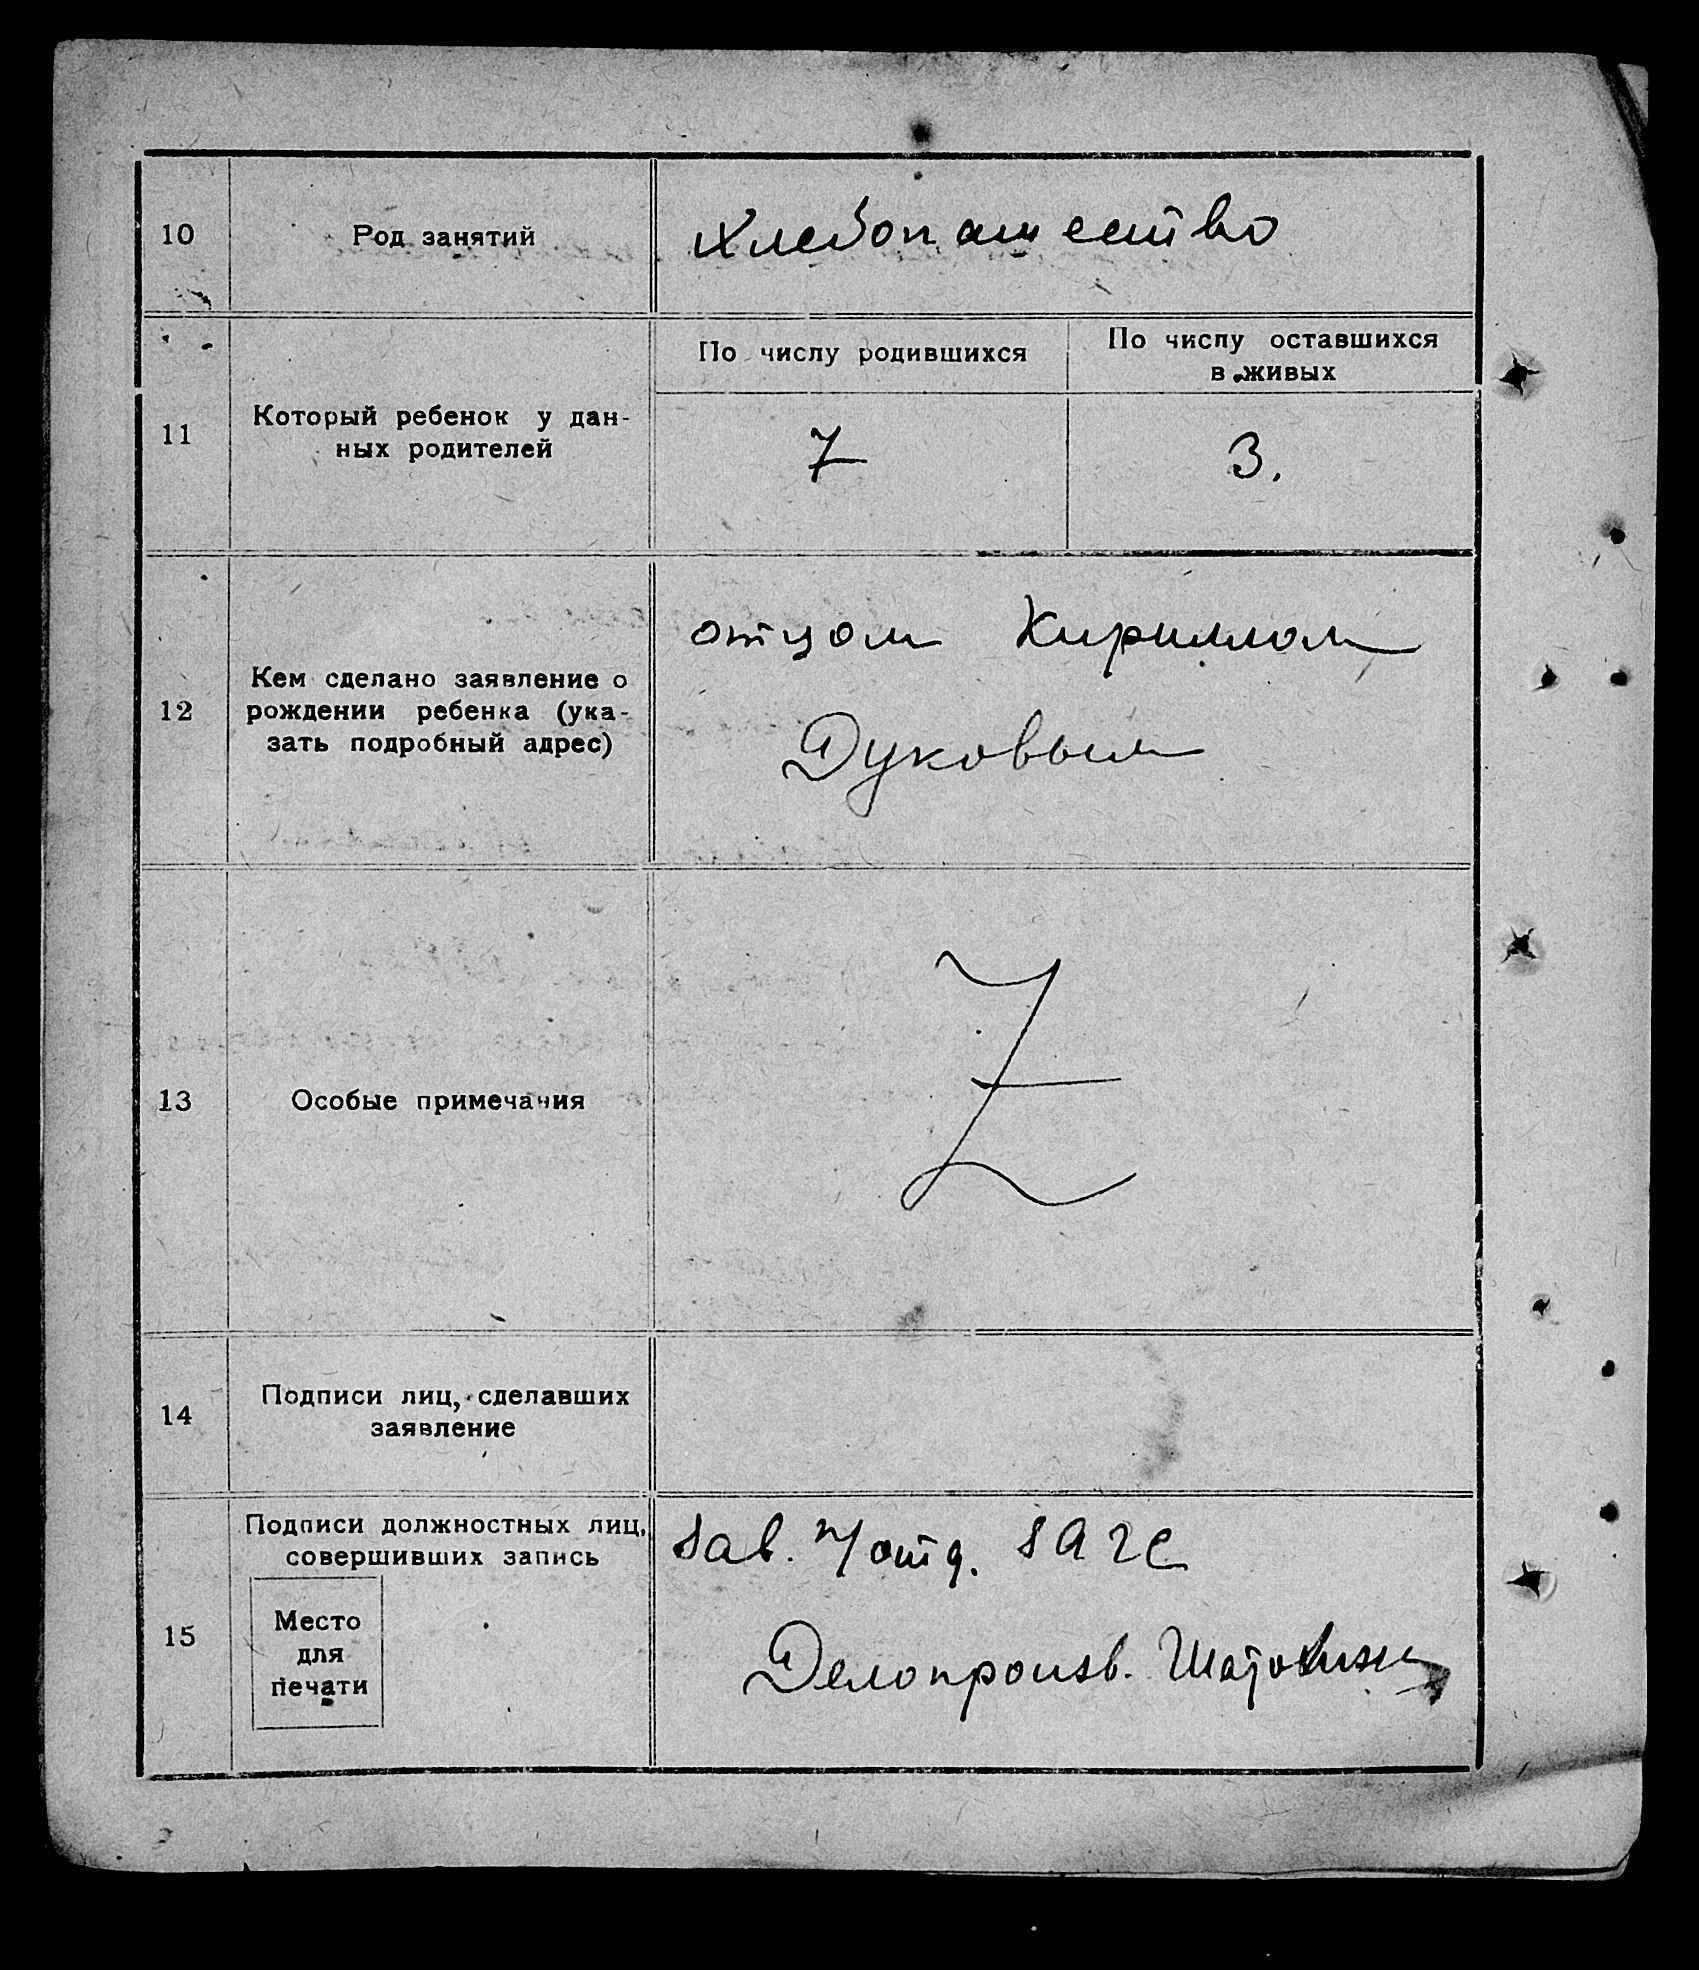 10
Род занятий
Хлебопашество
11
Который ребенок у дан-
ных родителей
По числу родившихся
По числу оставшихся
в живых
7
3.
12
Кем сделано заявление о
рождении ребенка (ука-
зать подробный адрес)
отцом Кириллом
Дуковым
13
Особые примечания
Z
14
Подписи лиц, сделавших
заявление
15
Подписи должностных лиц,
совершивших запись
Место
для
печати
Зав. п/отд. ЗАГС
Делопроизв.